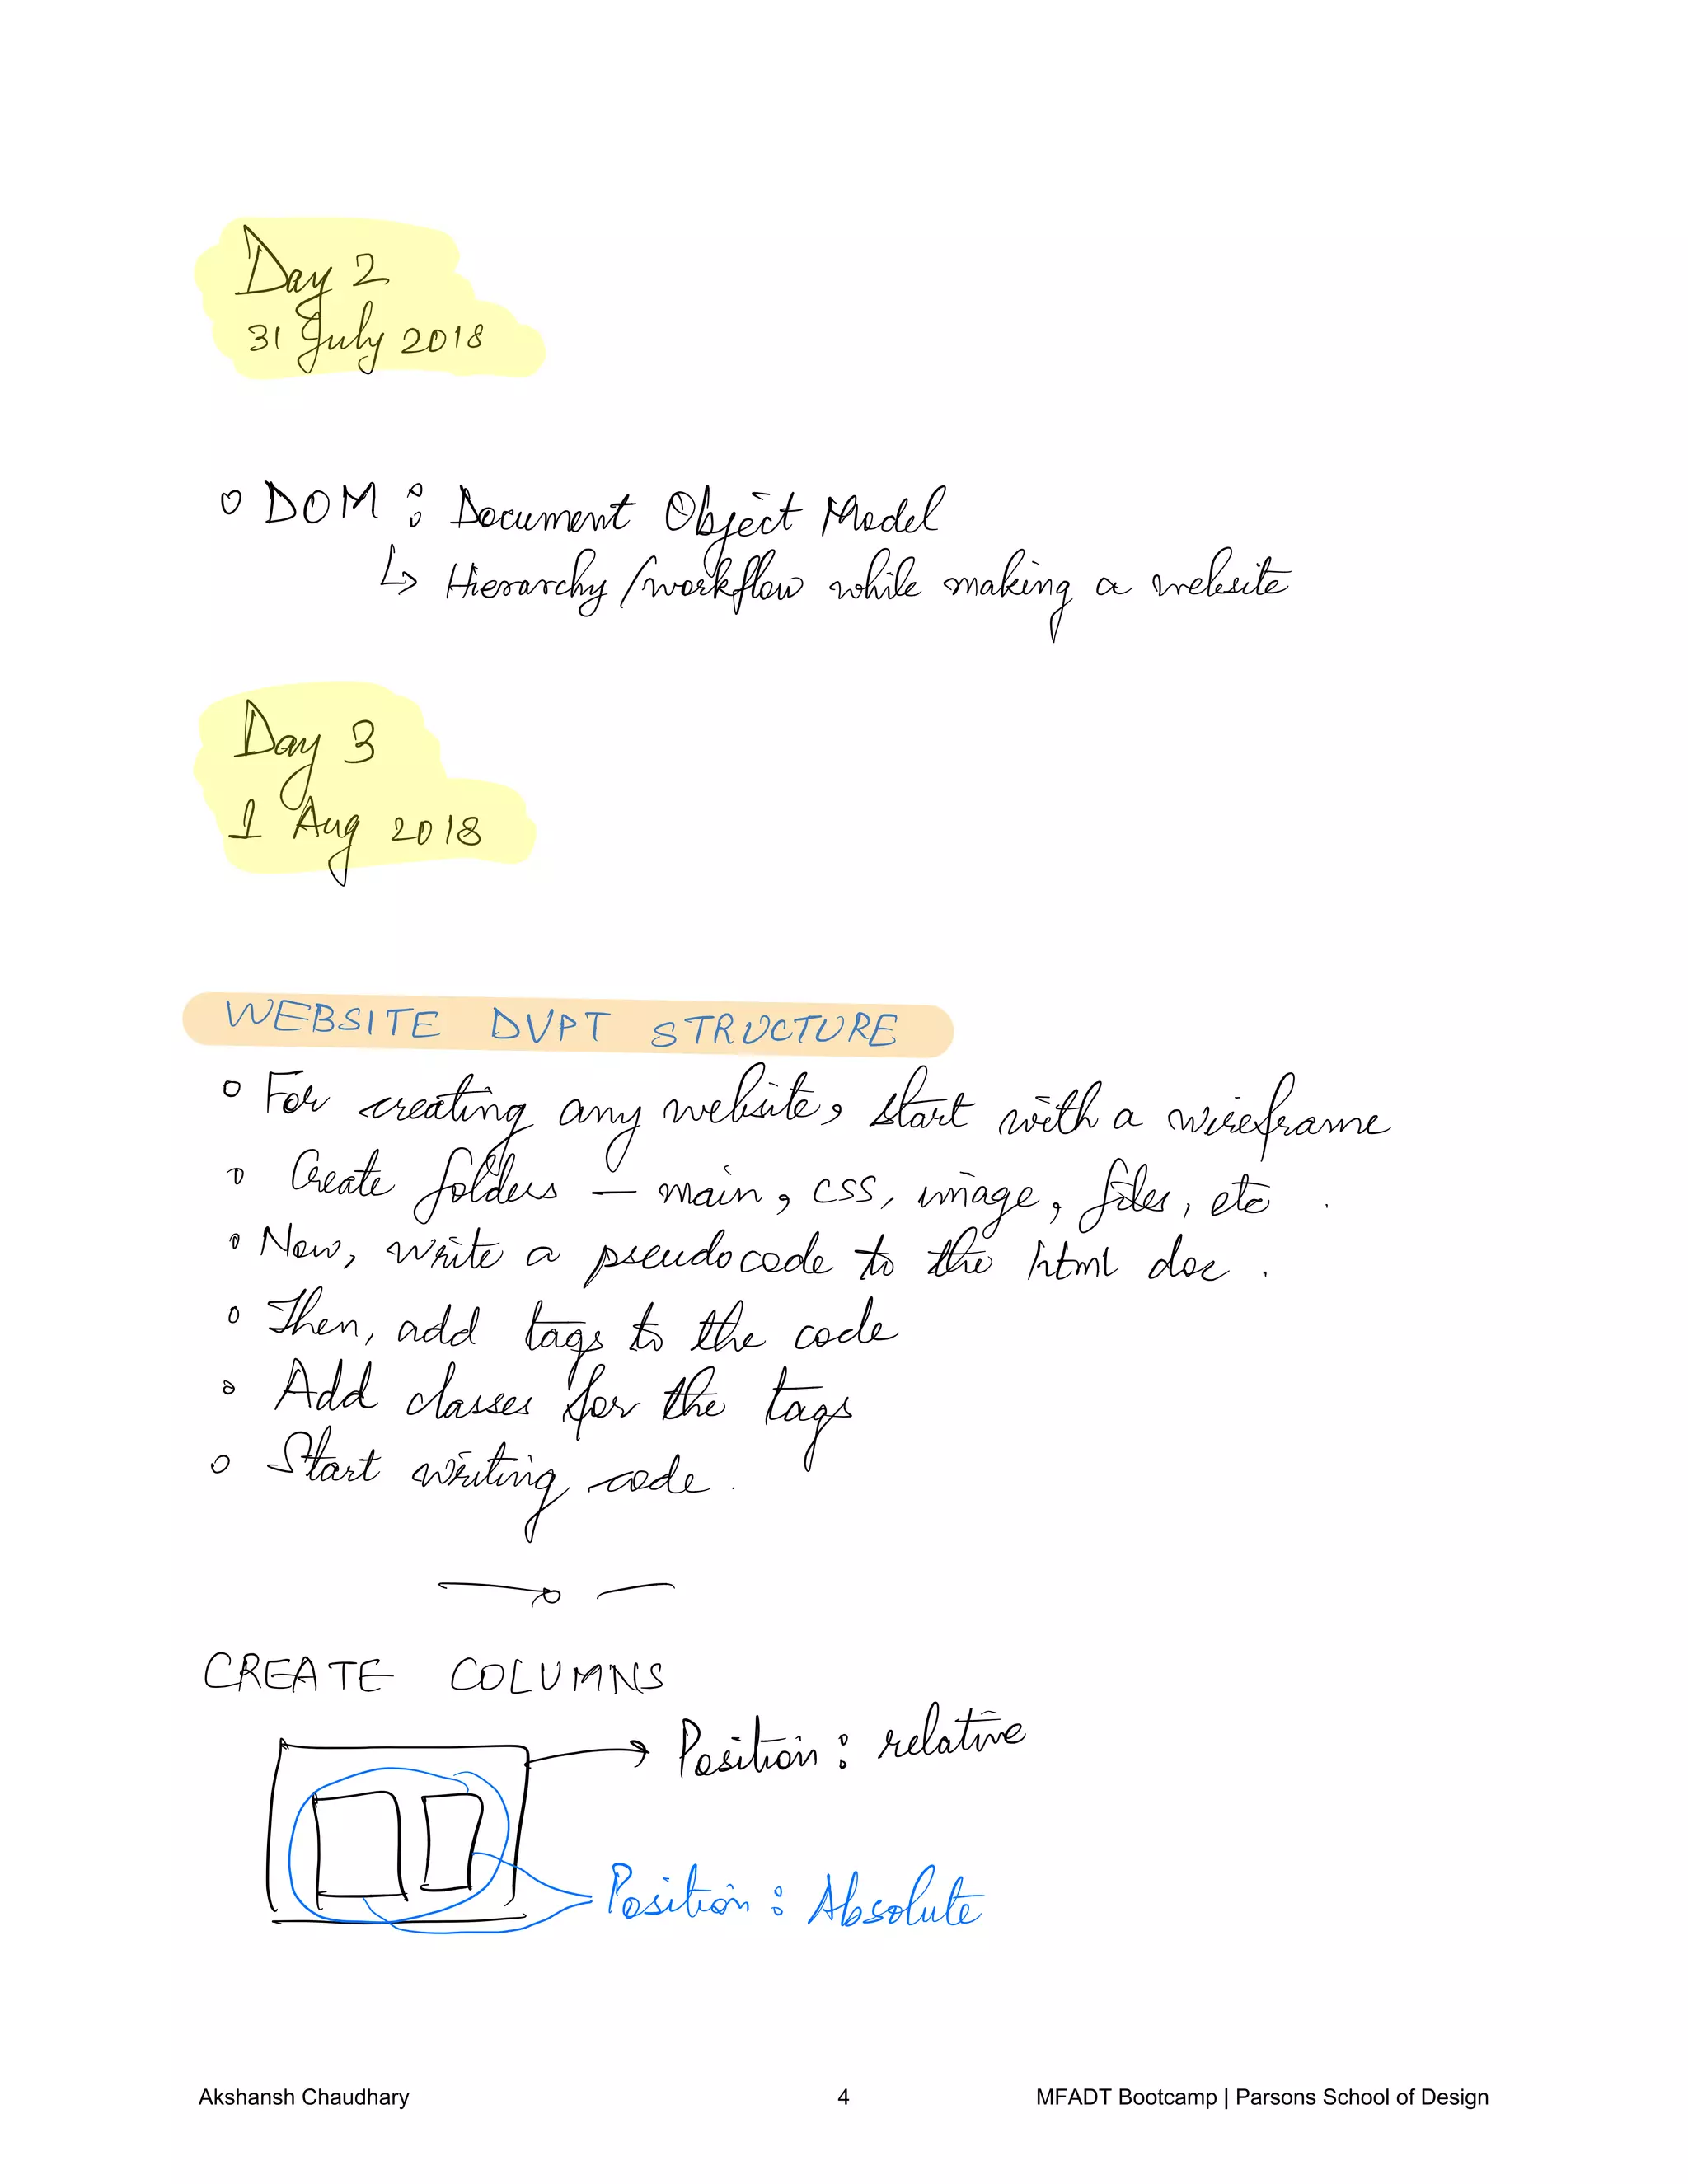 Day 2
31 July 2018
DOM : Document Object Model
↳ Hierarchy/workflow while making a website
Day 3
1 Aug 2018
WEBSITE DVPT STRUCTURE
For creating any website, start with a wireframe
Create folders – main, css, image, files, etc.
Now, write a pseudocode to the html doc.
Then, add tags to the code
Add classes for the tags
Start writing code.
CREATE COLUMNS
Position : relative
Position : Absolute
Akshansh Chaudhary 4 MFADT Bootcamp | Parsons School of Design